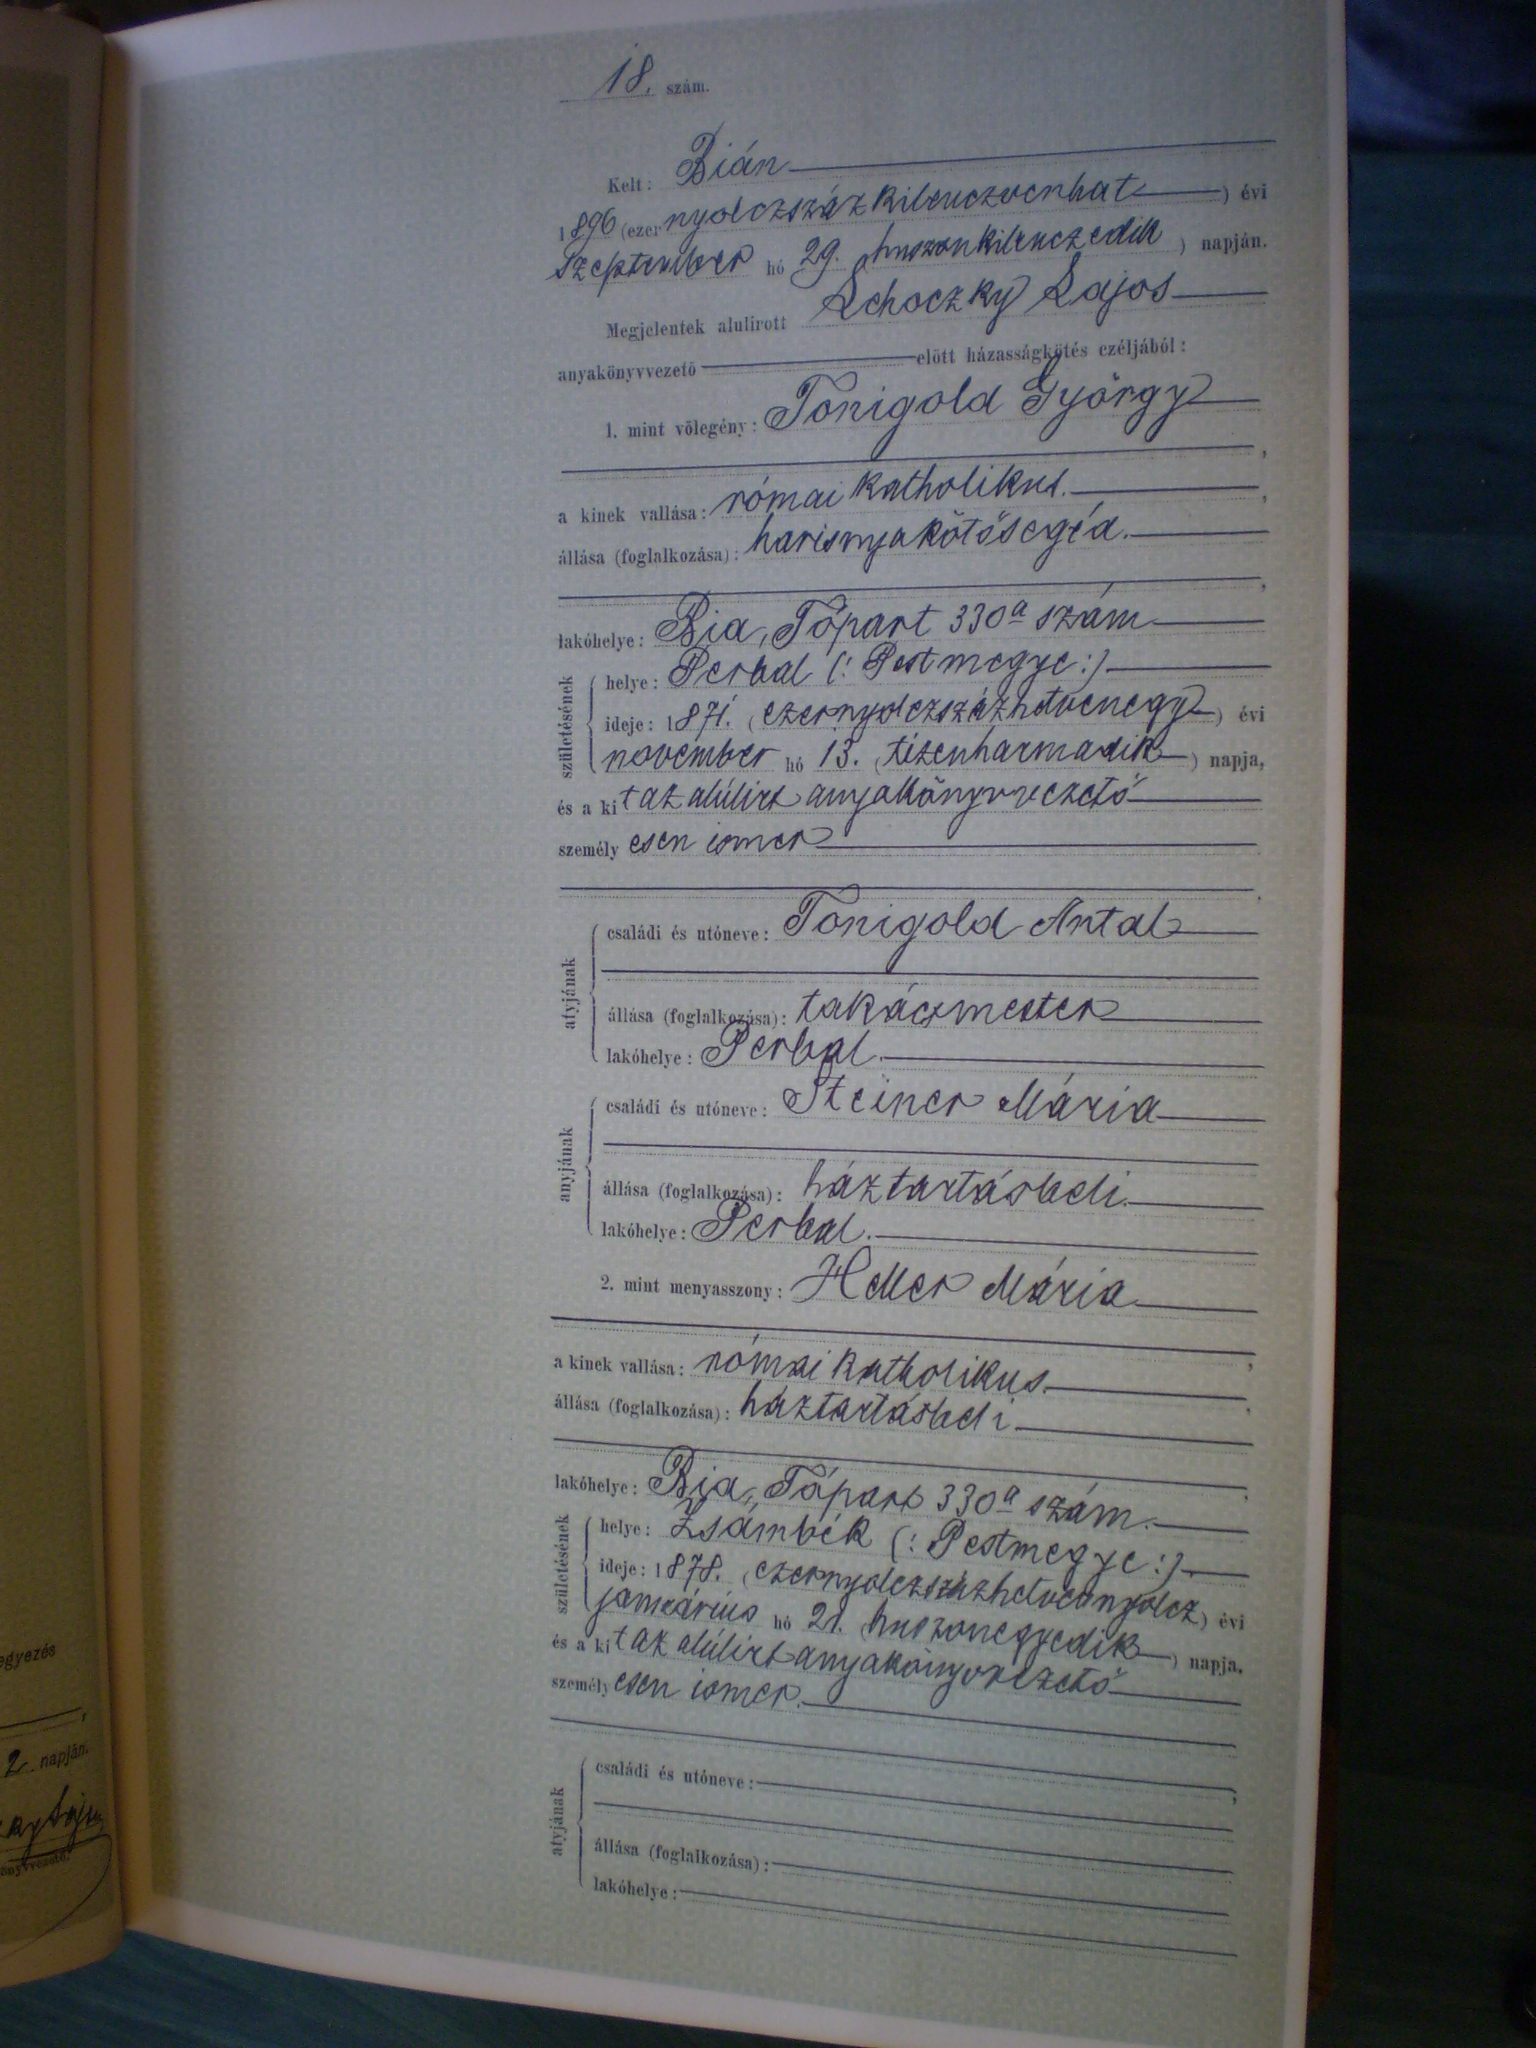 18. szám.
Kelt: Bián
1896 (ezer nyolczszáz kilenczvenhat) évi
szeptember hó 29. huszonkilenczedik) napján.
Megjelentek alulírott Schoczky Lajos
anyakönyvvezető előtt házasságkötés czéljából:
1. mint vőlegény: Tonigold György
a kinek vallása: római katholikus.
állása (foglalkozása): harisnyakötősegéd.
lakóhelye: Bia, Tópart 330a szám
születésének
helye: Perbal (: Pestmegye:)
ideje: 1871. (ezernyolczszázhetvenegy) évi
november hó 13. (tizenharmadik) napja,
és a kit az alúlirt anyakönyvvezető
személyesen ismer
atyjának
családi és utóneve: Tonigold Antal
állása (foglalkozása): takácsmester
lakóhelye: Perbal.
anyjának
családi és utóneve: Steiner Mária
állása (foglalkozása): háztartásbeli.
lakóhelye: Perbal.
2. mint menyasszony: Heller Mária
a kinek vallása: római katholikus.
állása (foglalkozása): háztartásbeli
lakóhelye: Bia, Tópart 330a szám.
születésének
helye: Zsámbék (: Pestmegye:)
ideje: 1878. (ezernyolczszázhetvennyolcz) évi
január​ius hó 21. (huszonegyedik) napja,
és a kit az alúlirt anyakönyvvezető
személyesen ismer.
atyjának
családi és utóneve:
állása (foglalkozása):
lakóhelye:
egyezés
2 napján.